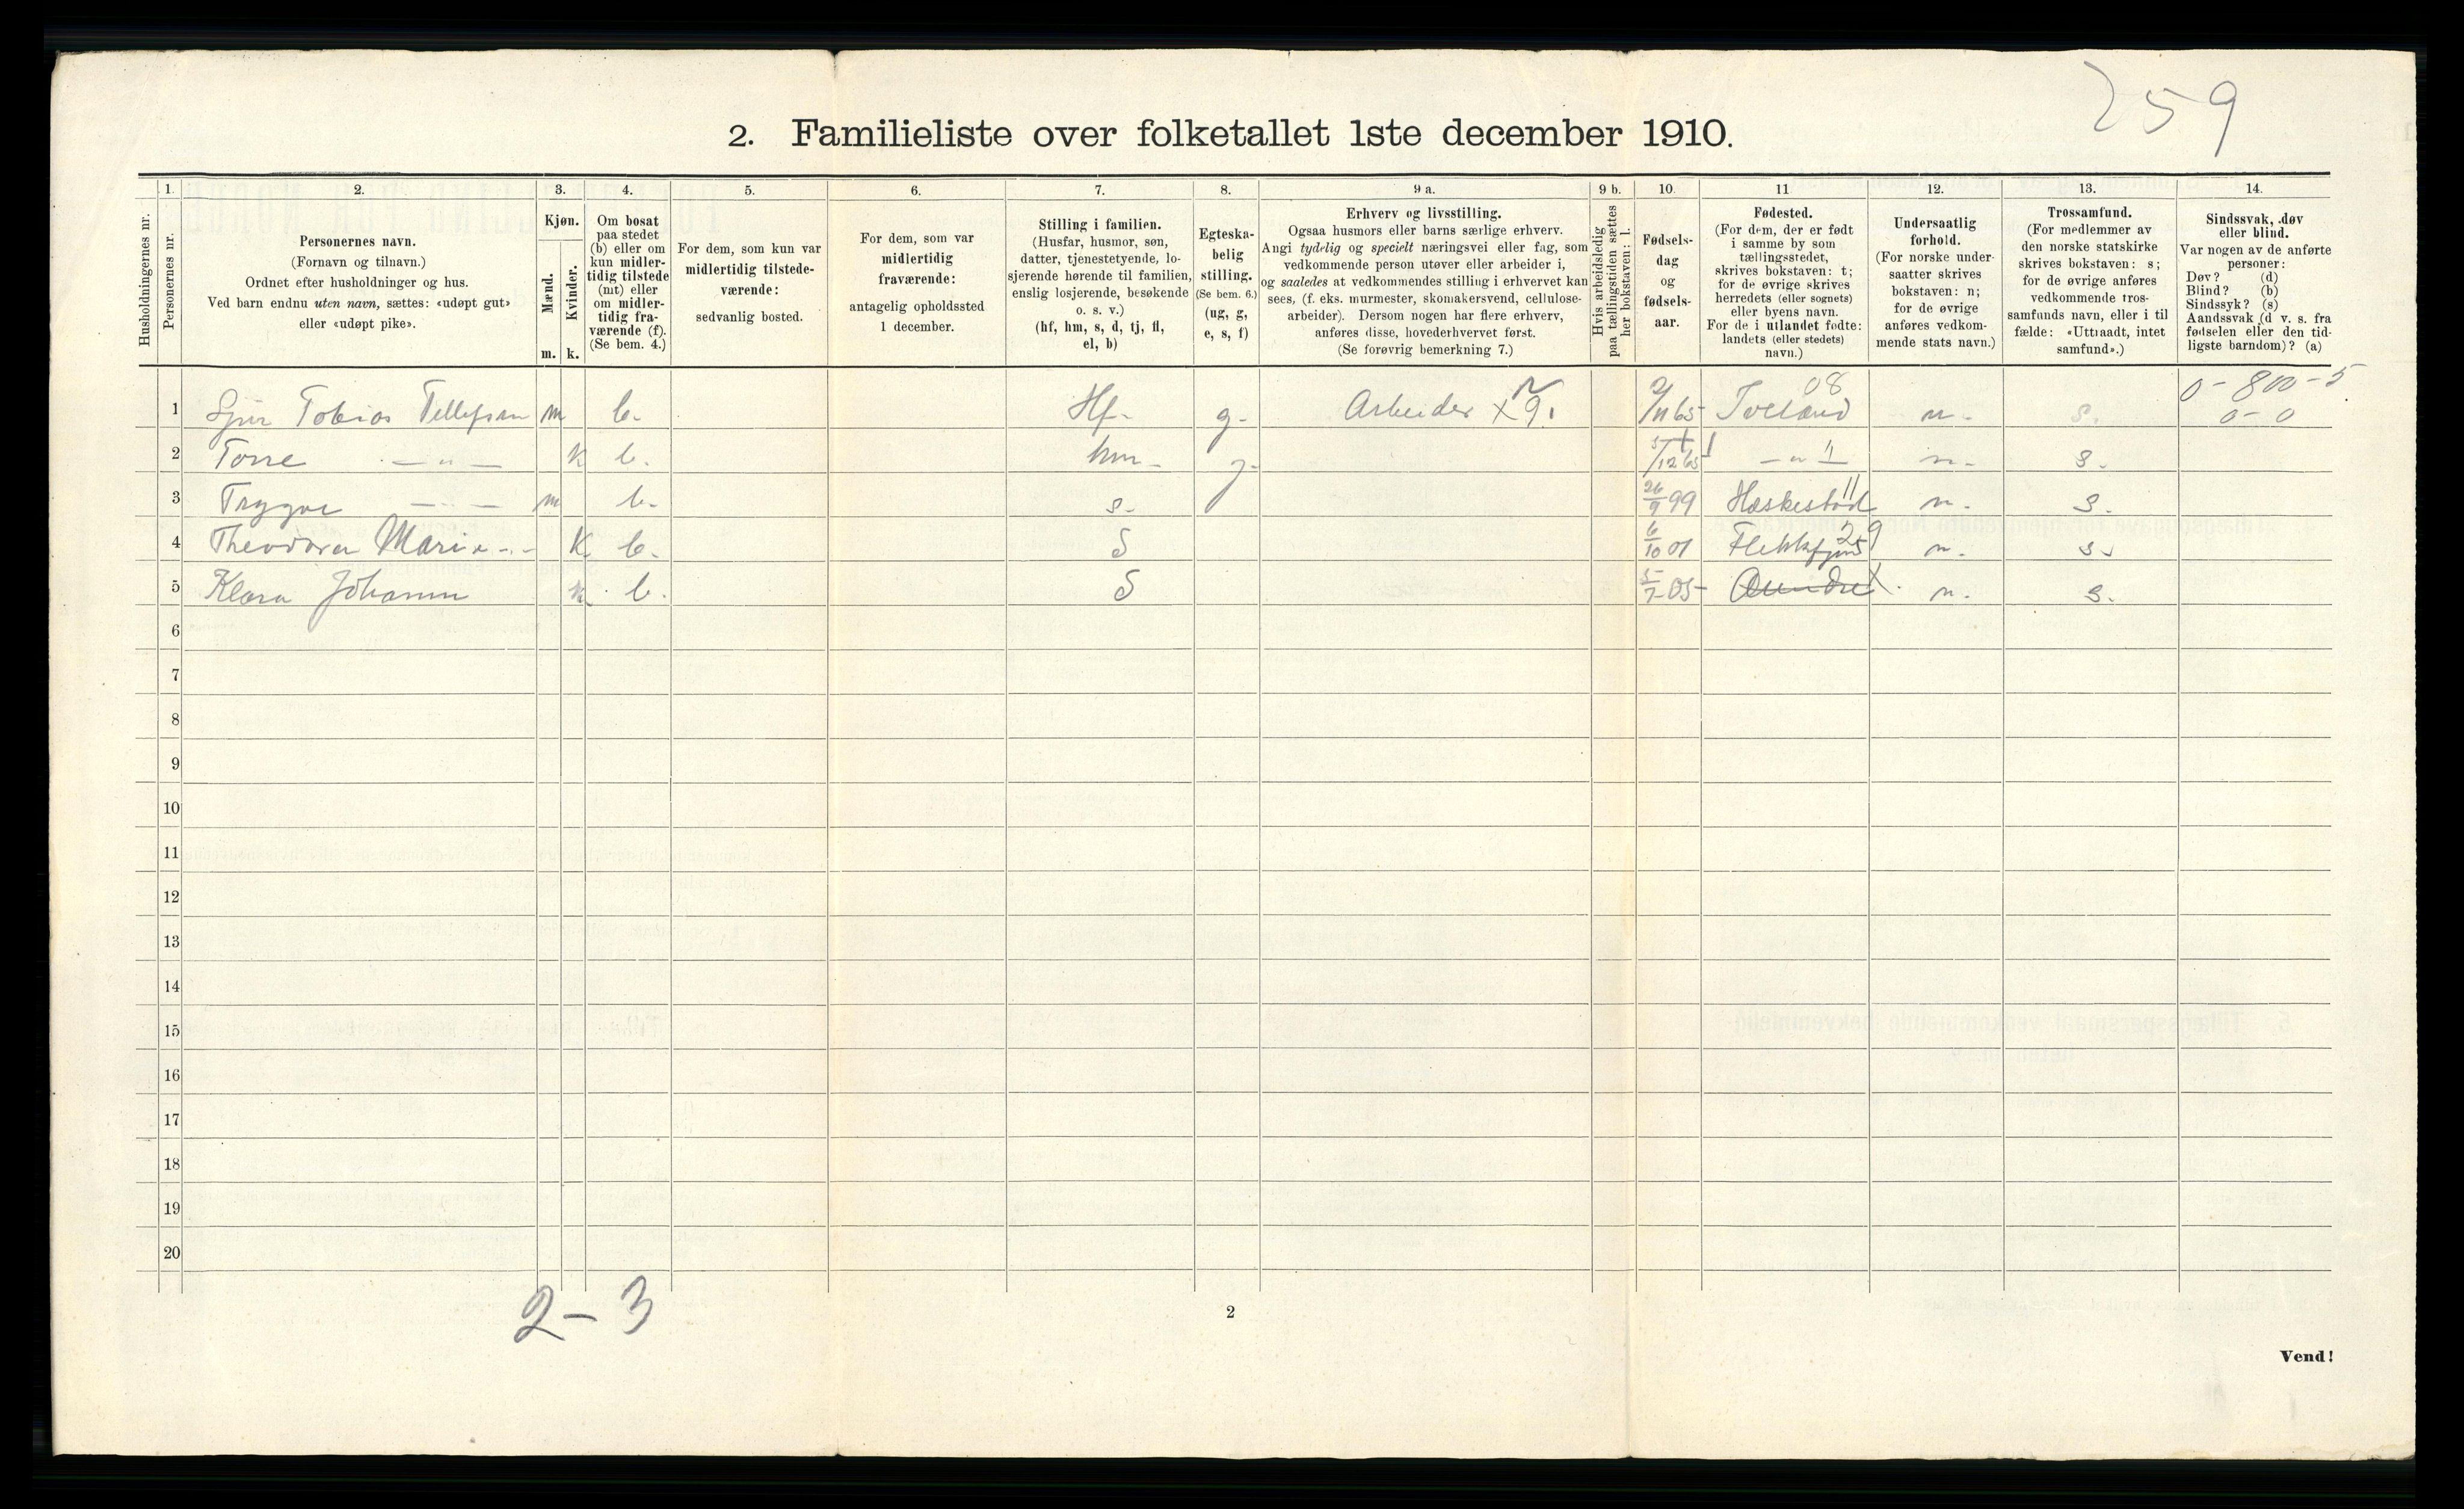 259
2. Familieliste over folketallet 1ste december 1910.
Husholdningernes nr.
1.
Personernes nr.
2.
Personernes navn.
(Fornavn og tilnavn.)
Ordnet efter husholdninger og hus.
Ved barn endnu uten navn, sættes: «udøpt gut»
eller «udøpt pike».
3.
Kjøn.
Mænd.
m.
Kvinder.
k.
4.
Om bosat
paa stedet
(b) eller om
kun midler-
tidig tilstede
(mt) eller
om midler-
tidig fra-
værende (f).
(Se bem. 4.)
5.
For dem, som kun var
midlertidig tilstede-
værende:
sedvanlig bosted.
6.
For dem, som var
midlertidig
fraværende:
antagelig opholdssted
1 december.
7.
Stilling i familien.
(Husfar, husmor, søn,
datter, tjenestetyende, lo-
sjerende hørende til familien,
enslig losjerende, besøkende
o. s. v.)
(hf, hm, s, d, tj, fl,
el, b)
8.
Egteska-
belig
stilling.
(Se bem. 6.)
(ug, g,
e, s, f)
9 a.
Erhverv og livsstilling.
Ogsaa husmors eller barns særlige erhverv.
Angi tydelig og specielt næringsvei eller fag, som
vedkommende person utøver eller arbeider i,
og saaledes at vedkommendes stilling i erhvervet kan
sees, (f. eks. murmester, skomakersvend, cellulose-
arbeider). Dersom nogen har flere erhverv,
anføres disse, hovederhvervet først.
(Se forøvrig bemerkning 7.)
9 b.
Hvis arbeidsledig
paa tællingstiden sættes
her bokstaven: l.
10.
Fødsels-
dag
og
fødsels-
aar.
11
Fødested.
(For dem, der er født
i samme by som
tællingsstedet,
skrives bokstaven: t;
for de øvrige skrives
herredets (eller sognets)
eller byens navn.
For de i utlandet fødte:
landets (eller stedets)
navn.)
12.
Undersaatlig
forhold.
(For norske under-
saatter skrives
bokstaven: n;
for de øvrige
anføres vedkom-
mende stats navn.)
13.
Trossamfund.
(For medlemmer av
den norske statskirke
skrives bokstaven: s;
for de øvrige anføres
vedkommende tros-
samfunds navn, eller i til
fælde: «Uttraadt, intet
samfund».)
14.
Sindssvak, døv
eller blind.
Var nogen av de anførte
personer:
Døv? (d)
Blind? (b)
Sindssyk? (s)
Aandssvak (d v. s. fra
fødselen eller den tid-
ligste barndom)? (a)
08 0-800-5
1 Tobias Tellefsen m b. Hf- g- Arbeider x 9. n. s. 0-0
2 Torre — " — k b. hm- g- 5/12 65 — " — n- s.
3 Trygve — " — m b- s- 26/9 99 Hæskestad 11 n. s.
4 Theodora Marie - " - K b- d 6/10 01 Flekkefjord 29 n. s.
5 Klara Johanne k b. d 5/7 05- n. s.
6
7
8
9
10
11
12
13
14
15
16
17
18
19
20
2-3
2
Vend!